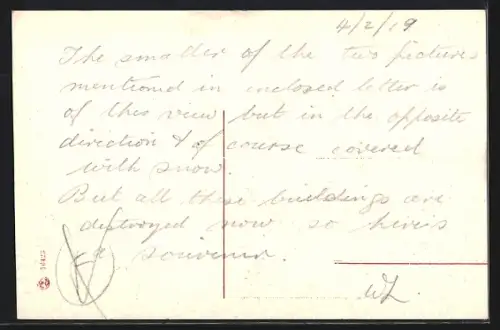 4/2/19
The smaller of the two pictures
mentioned in enclosed letter is
of this view but in the opposite
direction & of course covered
with snow.
But all these buildings are
destroyed now so heres
a souvenir.
WL